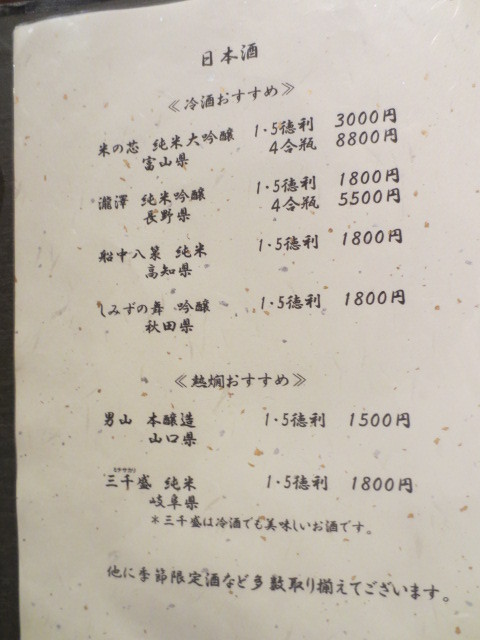 日本酒
≪冷酒おすすめ≫
米の芯 純米大吟醸 1・5徳利 3000円
富山県 4合瓶 8800円
瀧澤 純米吟醸 1・5徳利 1800円
長野県 4合瓶 5500円
船中八策 純米 1・5徳利 1800円
高知県
しみずの舞 吟醸 1・5徳利 1800円
秋田県
≪熱燗おすすめ≫
男山 本醸造 1・5徳利 1500円
山口県
三千盛 純米 1・5徳利 1800円
岐阜県
*三千盛は冷酒でも美味しいお酒です。
他に季節限定酒など多数取り揃えてございます。